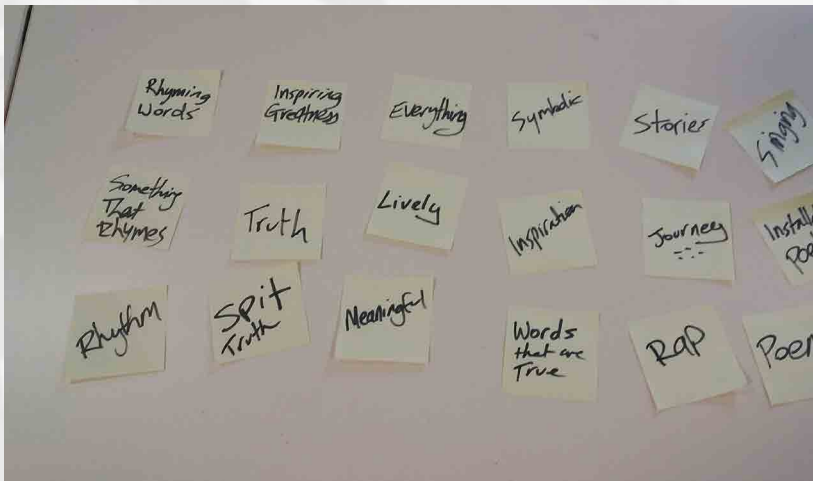 Rhyming
Words
Inspiring
Greatness
Everything
Symbolic
Stories
Singing
Something
That
Rhymes
Truth
Lively
Inspiration
Journey
Rhythm
Spit
Truth
Meaningful
Words
that are
True
Rap